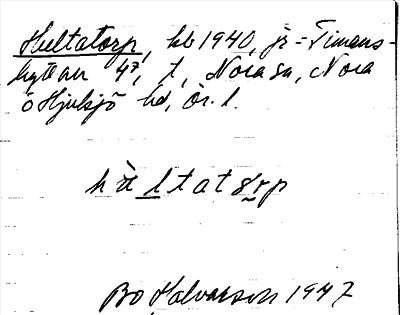 Hultatorp, kb 1940, jr = Timans-
hyttan 4⁷, t, Nora sn, Nora
o Hjulsjö hd, Ör. l.
h ù l t a t ɔ r p
Bo Halvarson 1947